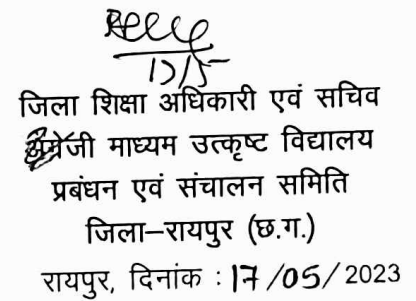 17/5
जिला शिक्षा अधिकारी एवं सचिव
अंग्रेजी माध्यम उत्कृष्ट विद्यालय
प्रबंधन एवं संचालन समिति
जिला–रायपुर (छ.ग.)
रायपुर, दिनांक : 17/05/2023